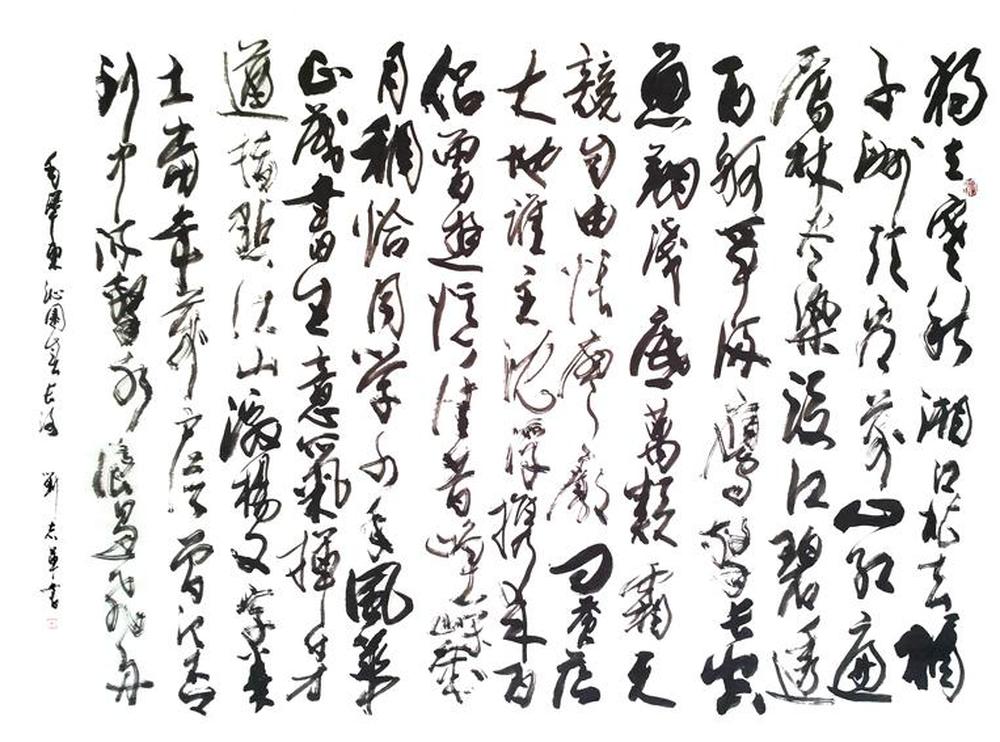 獨立寒秋湘江北去橘
子洲頭看萬山紅遍
層林尽染漫江碧透
百舸爭流鷹擊長空
魚翔淺底萬類霜天
競自由悵寥廓問蒼茫
大地誰主沉浮攜來百
侶曾遊憶往昔崢嶸歲
月稠恰同學少年風華
正茂書生意氣揮斥方
遒指點江山激揚文字糞
土當年萬戶侯曾記否
到中流擊水浪遏飛舟
毛澤東沁園春長沙 劉志書